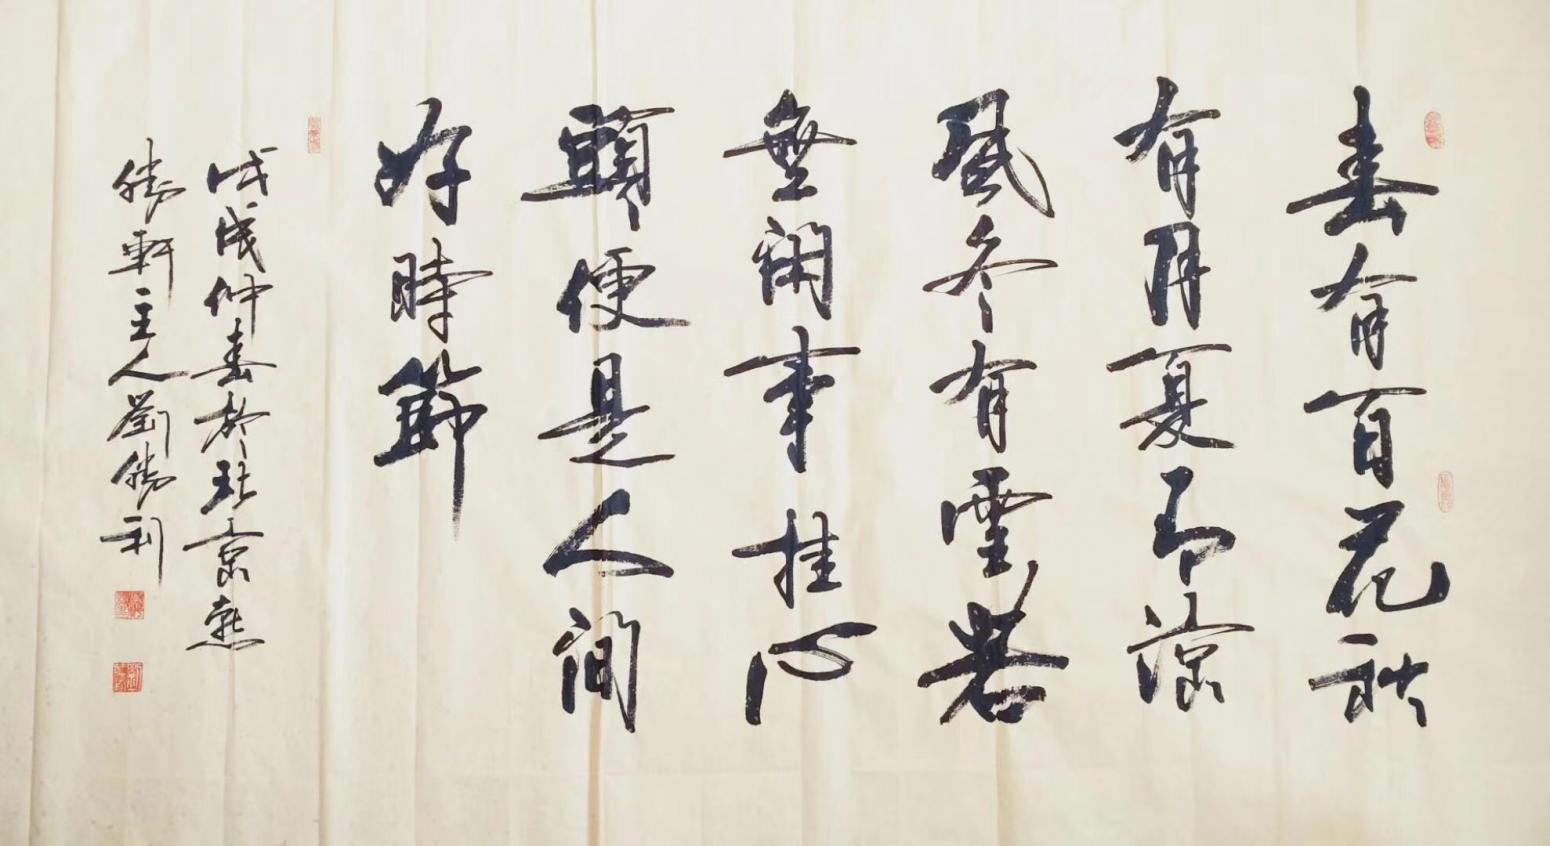 春有百花秋
有月夏有涼
風冬有雪若
無閑事挂心
頭便是人間
好時節
戊戌仲春於北京
勝軒主人劉勝利